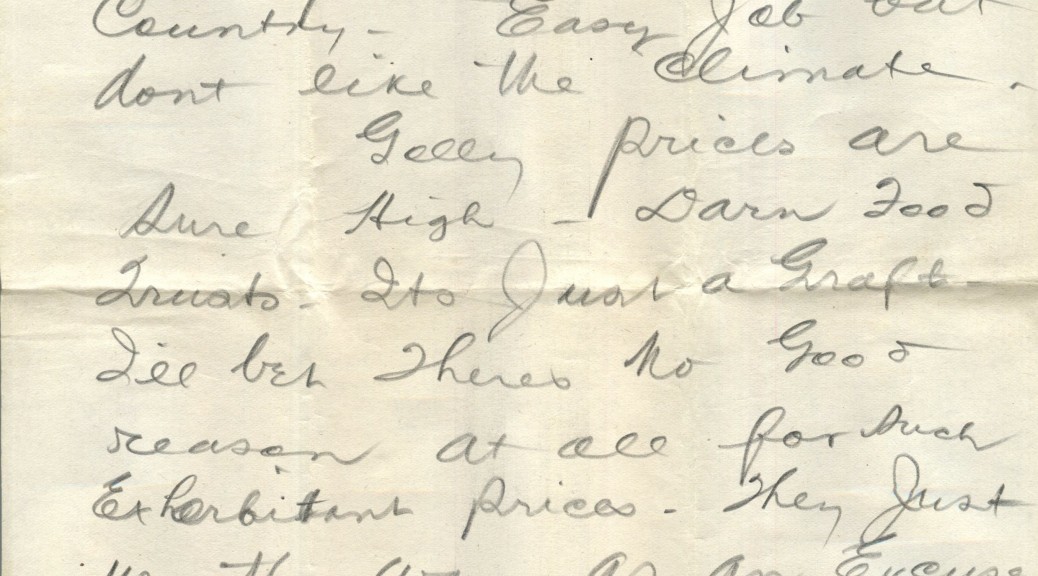 Country - Easy Job but
dont like the Climate.
Golly prices are
Sure High - Darn Food
Trusts - Its Just a Graft -
I'll bet Theres No Good
reason at all for Such
Exhorbitant prices - They Just
as an Excuse